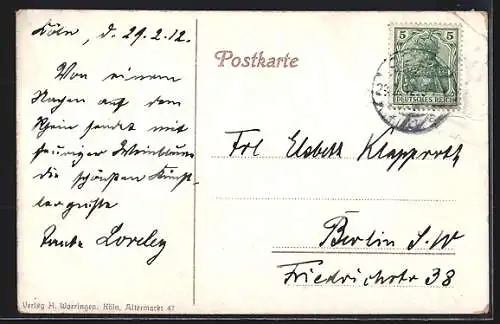 Köln, d. 29.2.12.
Von einem
Nachen auf dem
Rhein sendet mit
feuriger Weinblume
die schönsten Künst-
lergrüße
Tante Loreley
Verlag H. Worringen, Köln, Altermarkt 47
Postkarte
5 5
DEUTSCHES REICH
Frl Elsbeth Klapproth
Berlin S.W
Friedrichstr 38